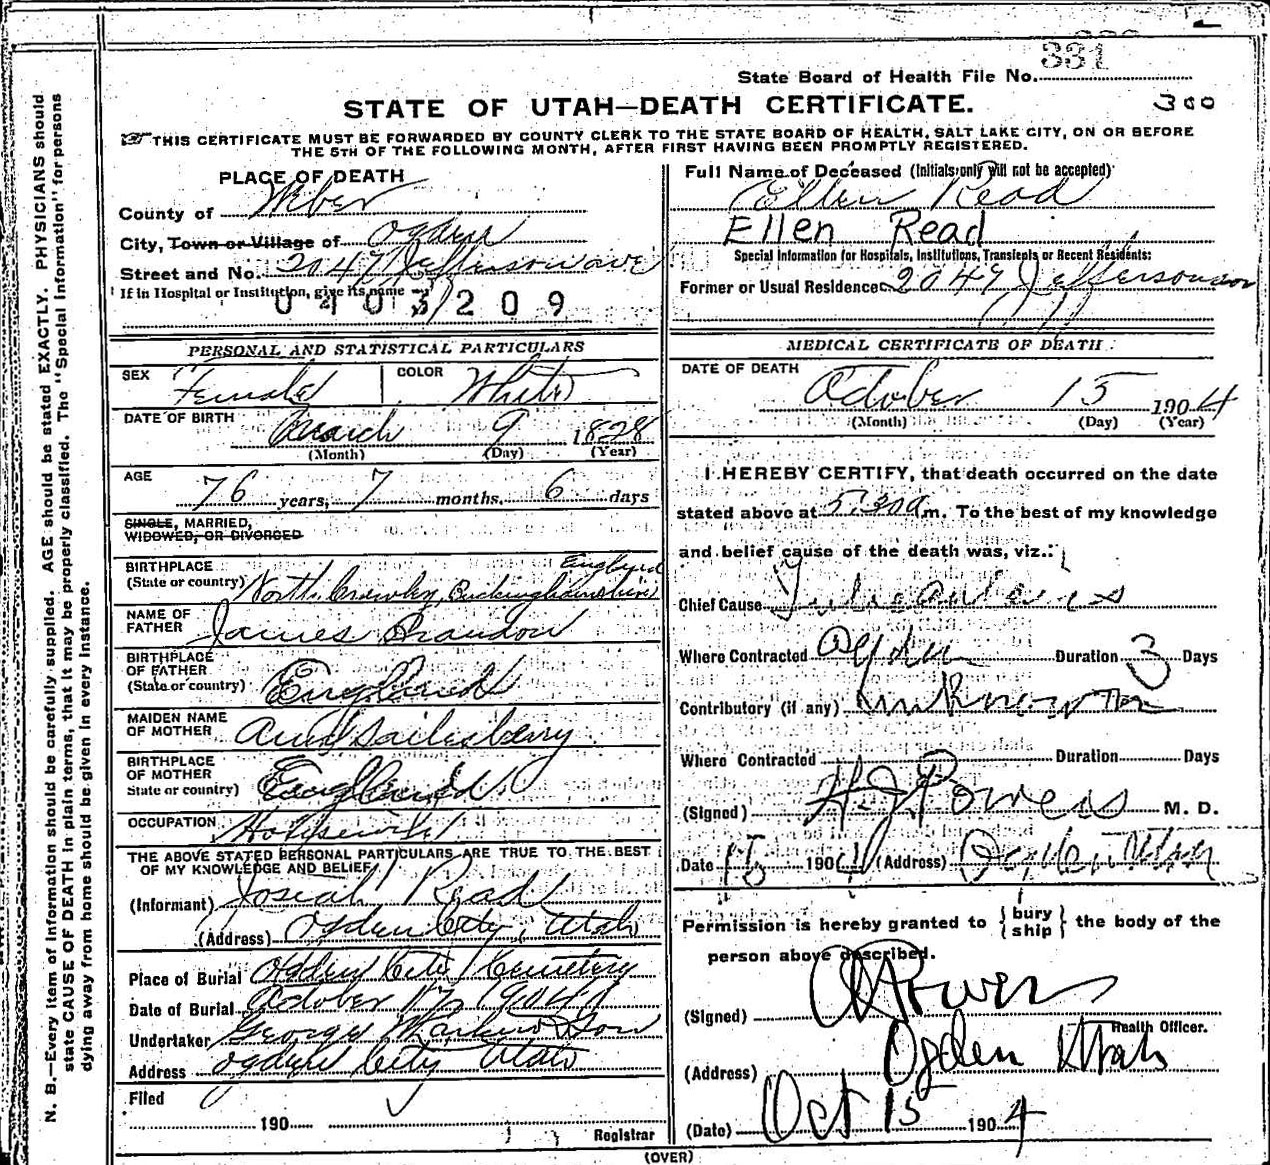 331
State Board of Health File No.
STATE OF UTAH—DEATH CERTIFICATE.
300
THIS CERTIFICATE MUST BE FORWARDED BY COUNTY CLERK TO THE STATE BOARD OF HEALTH, SALT LAKE CITY, ON OR BEFORE
THE 5TH OF THE FOLLOWING MONTH, AFTER FIRST HAVING BEEN PROMPTLY REGISTERED.
N. B.—Every item of information should be carefully supplied. AGE should be stated EXACTLY. PHYSICIANS should
state CAUSE OF DEATH in plain terms, that it may be properly classified. The "Special Information" for persons
dying away from home should be given in every instance.
PLACE OF DEATH
County of Weber
City, Town or Village of Ogden
Street and No. 2049 Jefferson ave
If in Hospital or Institution, give its name
0403209
Full Name of Deceased (Initials only will not be accepted)
Ellen Read
Ellen Read
Special Information for Hospitals, Institutions, Transients or Recent Residents:
Former or Usual Residence 2049 Jefferson av
PERSONAL AND STATISTICAL PARTICULARS
SEX Female COLOR White
DATE OF BIRTH March 9 1828
(Month) (Day) (Year)
AGE 76 years, 7 months, 6 days
SINGLE, MARRIED,
WIDOWED, OR DIVORCED
BIRTHPLACE England
(State or country) North Crawley, Buckinghamshire
NAME OF
FATHER James Brandon
BIRTHPLACE
OF FATHER
(State or country) England
MAIDEN NAME
OF MOTHER Ann
BIRTHPLACE
OF MOTHER
State or country) England
OCCUPATION Housewife
THE ABOVE STATED PERSONAL PARTICULARS ARE TRUE TO THE BEST
OF MY KNOWLEDGE AND BELIEF
(Informant) Josiah Read
(Address) Ogden City, Utah
Place of Burial Ogden City Cemetery
Date of Burial October 17, 1904
Undertaker George & Son
Address Ogden City Utah
Filed
190
Registrar
MEDICAL CERTIFICATE OF DEATH
DATE OF DEATH
October 15 1904
(Month) (Day) (Year)
I HEREBY CERTIFY, that death occurred on the date
stated above at 5.30 a m. To the best of my knowledge
and belief cause of the death was, viz.:
Chief Cause
Where Contracted Ogden Duration 3 Days
Contributory (if any) unknown
Where Contracted Duration Days
(Signed) H. J. Powers M. D.
Date 1904 (Address) Ogden, Utah
Permission is hereby granted to {bury ship} the body of the
person above described.
(Signed) Powers
Health Officer.
(Address) Ogden Utah
(Date) Oct 15 1904
(OVER)